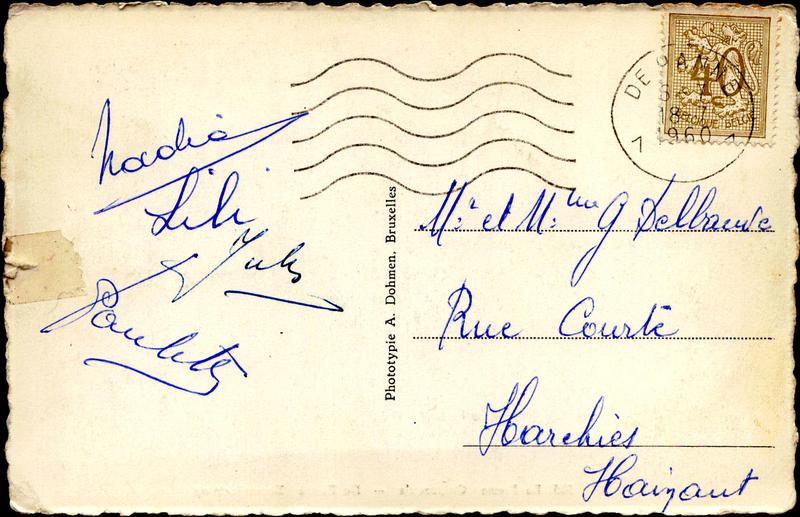 Nadia
Lili
Jules
Paulette
Phototypie A. Dohmen, Bruxelles
DE PANNE
18
1960
40
BELGIQUE BELGIE
Mr et Mme G Delbauve
Rue Courte
Harchies
Hainaut